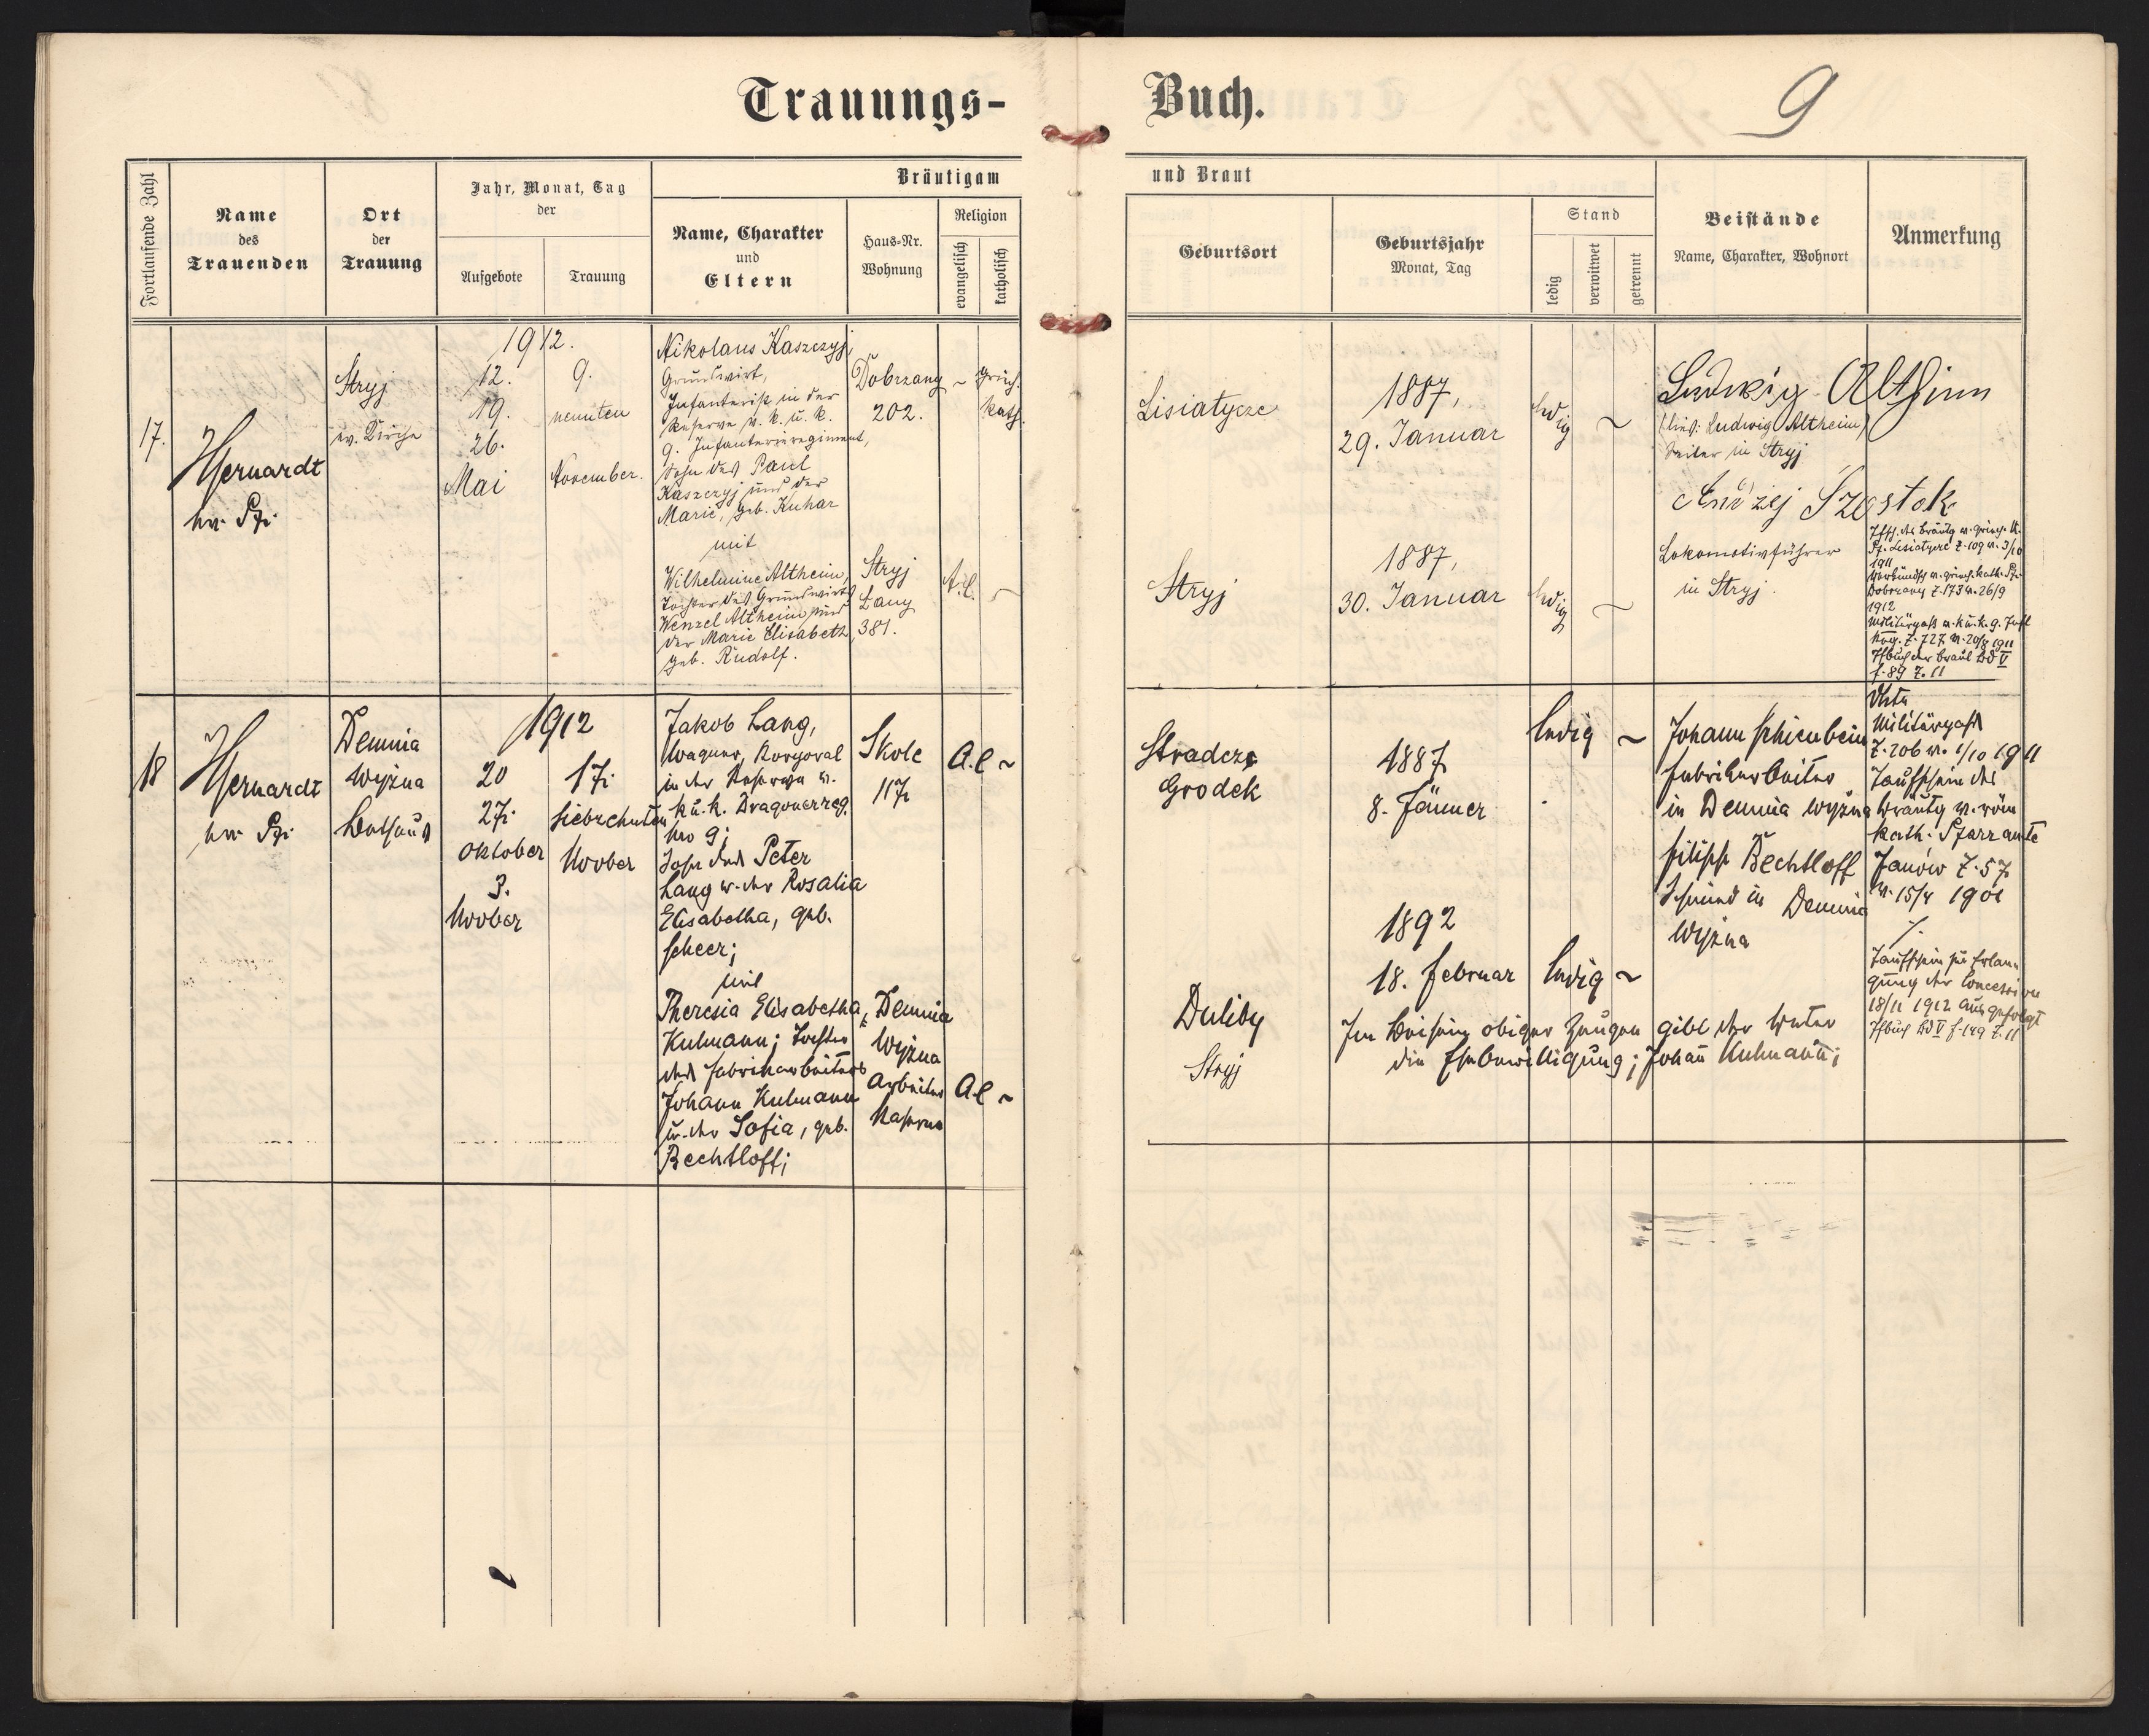 Trauungs-
Buch.
9
Fortlaufende Zahl
Name
des
Trauenden
Ort
der
Trauung
Jahr, Monat, Tag
der
Aufgebote
Trauung
Bräutigam
und Braut
Name, Charakter
und
Eltern
Haus-Nr.
Wohnung
Religion
evangelisch
katholisch
Geburtsort
Geburtsjahr
Monat, Tag
Stand
ledig
verwitwet
getrennt
Beistände
Name, Charakter, Wohnort
Anmerkung
17.
Stryj
ev. Kirche
1912.
12.
19.
26.
Mai
9.
neunten
November.
Nikolaus Kaszczyj,
Grundwirt,
Infanterist in der
Reserve d. k. u. k.
9. Infanterieregiment,
Sohn des Paul
Kaszczyj und der
Marie, geb. Kuhar
mit
Wilhelmine Altheim,
Tochter des Grundwirts
Wenzel Altheim und
der Marie Elisabeth
geb. Rudolf.
Dobrzany
202.
Stryj
Lany
381.
~
griech.
kath.
A.C.
~
Lisiatycze
Stryj
1887,
29. Januar
1887,
30. Januar
ledig
~
ledig
~
Ludwig Altheim
(lies: Ludwig Altheim)
in Stryj
Andrzej Szostok
Lokomotivführer
in Stryj.
Tfsch. des Bräutg v. griech. k.
Pf. Lisiatycze Z. 109 v. 3/10
1911
Verkündsch v. griech. kath. Pf.
Dobrzany Z. 173 v. 26/9
1912
Militärpaß v. k. u. k. 9. Inft
Reg. Z. 727 v. 20/8 1911
Tfbuch der Braut Bd V
f. 89 Z. 11
18
Demnia
Wyżna
Bethaus
1912
20
27.
Oktober
3.
Novber
17.
siebzehnten
Novber
Jakob Lang,
Wagner, Korporal
in der Reserve v.
k. u. k. Dragonerreg.
No 9;
Sohn des Peter
Lang u. der Rosalia
Elisabetha, geb.
Scheer;
mit
Theresia Elisabetha,
Kulmann; Tochter
des Fabrikarbeiters
Johann Kulmann
u. der Sofia, geb.
Bechtloff;
Skole
117.
Demnia
Wyżna
Arbeiter
Kaserne
A.C ~
A.C ~
Stradcze
Grodek
Duliby
Stryj
1887
8. Jänner
1892
18. Februar
ledig ~
ledig ~
Johann Schienbein
Fabrikarbeiter
in Demnia Wyżna
Filipp Bechtloff
Schmied in Demnia
Wyżna
Im Beisein obiger Zeugen gibt der Vater
die Ehebewilligung; Johann Kulmann;
Militärpaß
Z. 206 v. 1/10 1911
Taufschein des
Bräutg v. röm
kath. Pfarramte
Janów Z. 57
v. 15/4 1901
Taufschein zur Erlan
gung der Concession
18/11 1912 ausgefolgt
Tfbuch Bd V f. 149 Z. 11